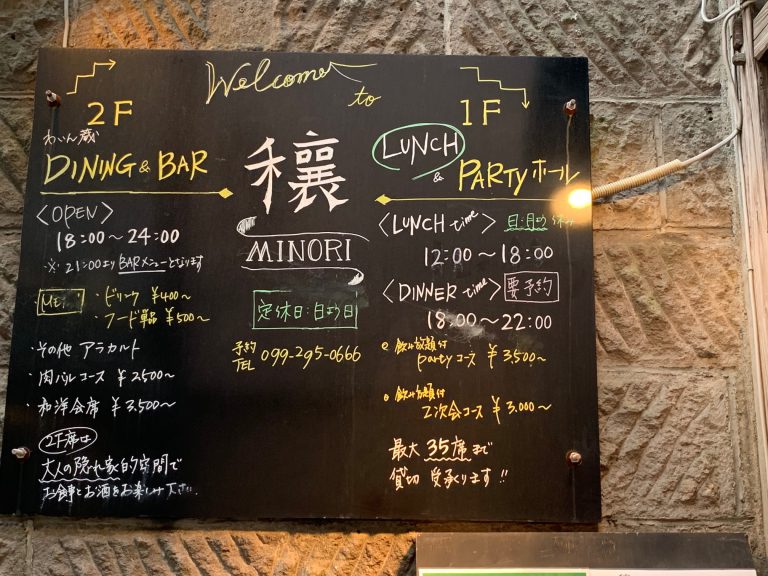 Welcome to
2F
わいん蔵
DINING & BAR
<OPEN>
18:00～24:00
※ 21:00より BARメニューとなります
・ドリンク ¥400～
・フード単品 ¥500～
・その他 アラカルト
・肉バルコース ¥2500～
・和洋会席 ¥3,500～
2F席は
大人の隠れ家的空間で
お食事とお酒をお楽しみ下さい
穣
MINORI
定休日:日よう日
予約
TEL 099-295-0666
1F
LUNCH
& PARTYホール
<LUNCH time> 日・月よう 休み
12:00～18:00
<DINNER time> 要予約
18:00～22:00
飲み放題付
partyコース ¥3,500～
飲み放題付
2次会コース ¥3,000～
最大 35席まで
貸切 受承ります!!